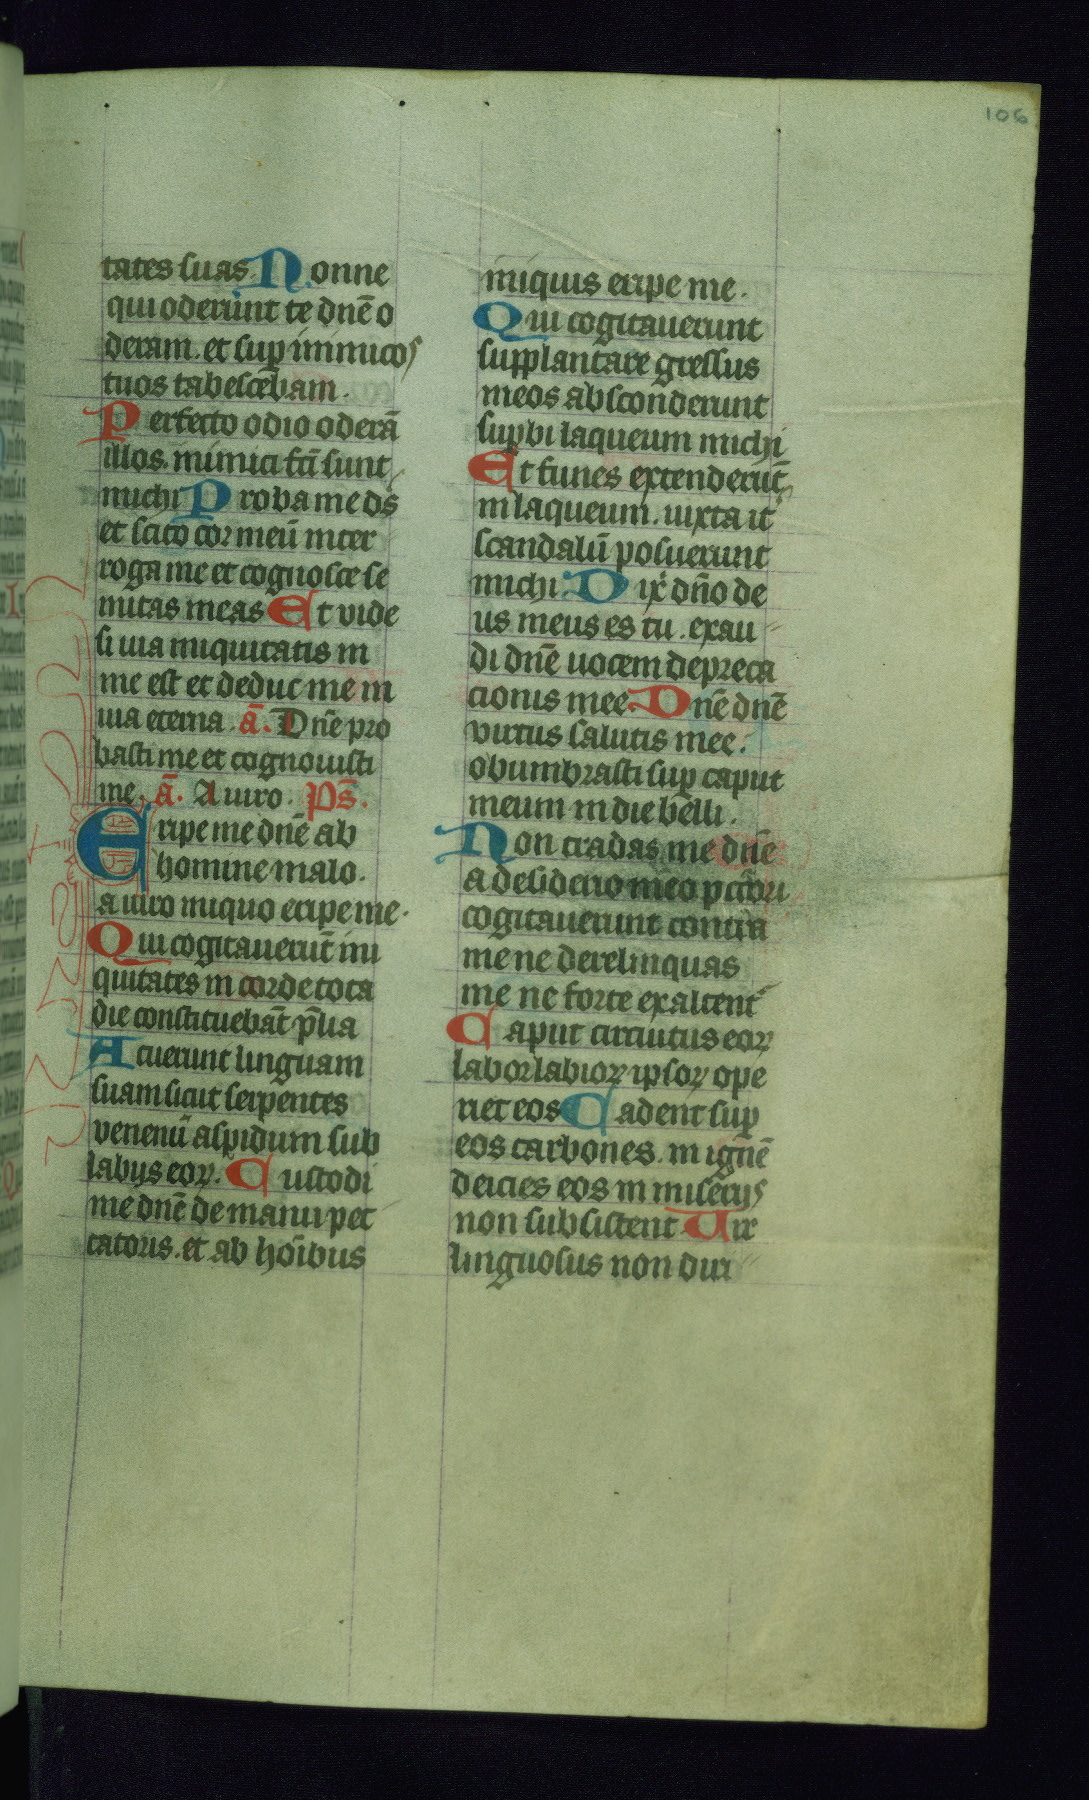 106
tates suas. Nonne
qui oderunt te dnē o
deram. et sup inimicos
tuos tabescebam.
Perfecto odio oderā
illos. inimici fc̄i sunt
michi Proba me ds̄
et scito cor meū inter
roga me et cognosce se
mitas meas Et vide
si uia iniquitatis in
me est et deduc me in
uia eterna. ā. Dn̄e pro
basti me et cognouisti
me. ā. A uiro. Ps̄.
Eripe me dnē ab
homine malo.
a uiro iniquo eripe me.
Qui cogitauerūt ini
quitates in corde tota
die constituebāt p̄lia
Acuerunt linguam
suam sicut serpentes
venenū aspidum sub
labijs eoꝝ. Custodi
me dnē de manu pec
catoris. et ab hoı̄bus
iniquis eripe me.
Qui cogitauerunt
supplantare gressus
meos absconderunt
supbi laqueum michi
Et funes extenderūt
in laqueum. iuxta it̉
scandalū posuerunt
michi. Dix̉ dn̄o de
us meus es tu. exau
di dnē uocem depreca
cionis mee. Dnē dnē
virtus salutis mee.
obumbrasti sup caput
meum in die belli.
Non tradas me dnē
a desiderio meo pctōri
cogitauerunt contra
me ne derelinquas
me ne forte exaltent̉
Caput circuitus eoꝝ
labor labioꝝ ipsoꝝ ope
riet eos Cadent sup
eos carbones. in ignē
deicies eos in miserijs
non subsistent Uir
linguosus non diri